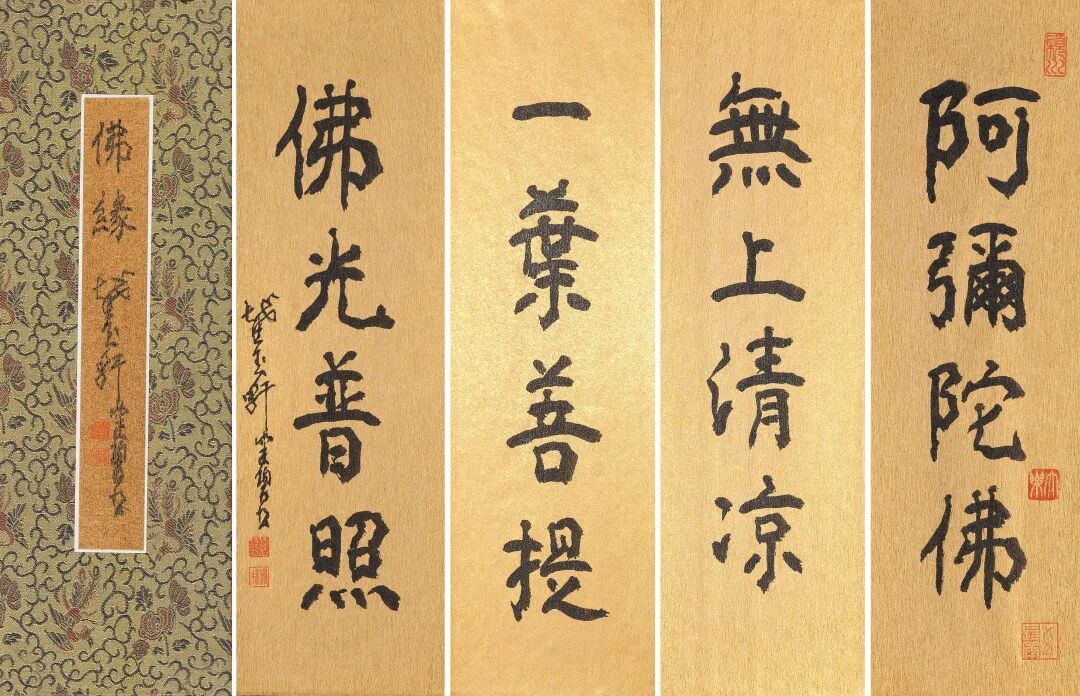 阿彌陀佛
無上清凉
一葉菩提
佛光普照
佛緣